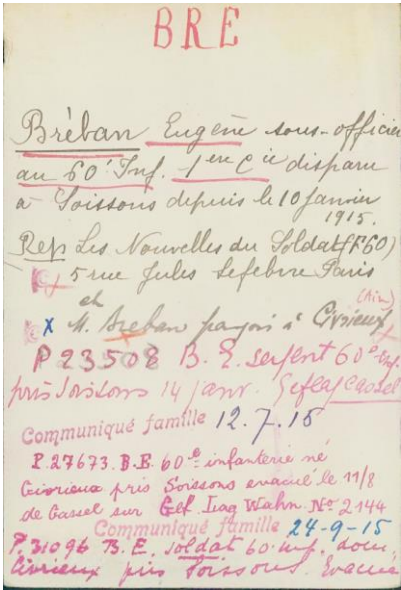 BRE
Bréban Eugène sous-officier
au 60e Inf. 1ere Cie disparu
à Soissons depuis le 10 Janvier
1915.
Rep Les Nouvelles du Soldat (F60)
5 rue Jules Lefebvre Paris
et (Ain)
X M. Breban à Civrieux
P 23508 B. E. sergent 60e inf.
pris Soissons 14 janv. Geflag Cassel
Communiqué famille 12.7.15
P. 27673. B. E. 60e infanterie né
Civrieux pris Soissons evacué le 11/8
de Cassel sur Gef. Lag Wahn. No 2144
Communiqué famille 24-9-15
P. 31096 B. E. soldat 60 inf. dom.
Civrieux pris Soissons. Evacué